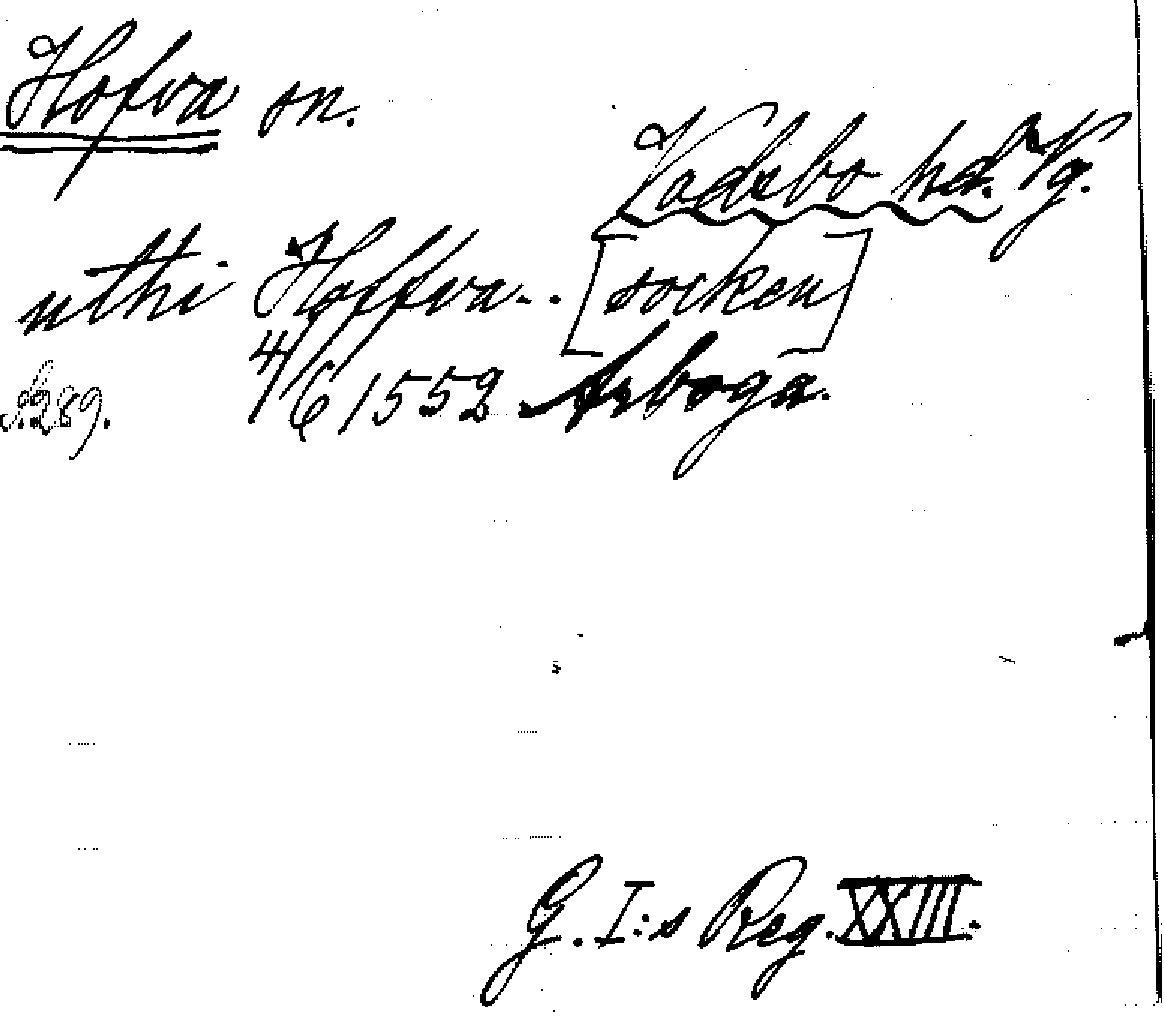 Hofva sn.
Vadsbo hd. Vg.
uthi Hoffva.. [socken]
s. 289. 4/6 1552 Arboga.
G. I:s Reg. XXIII.